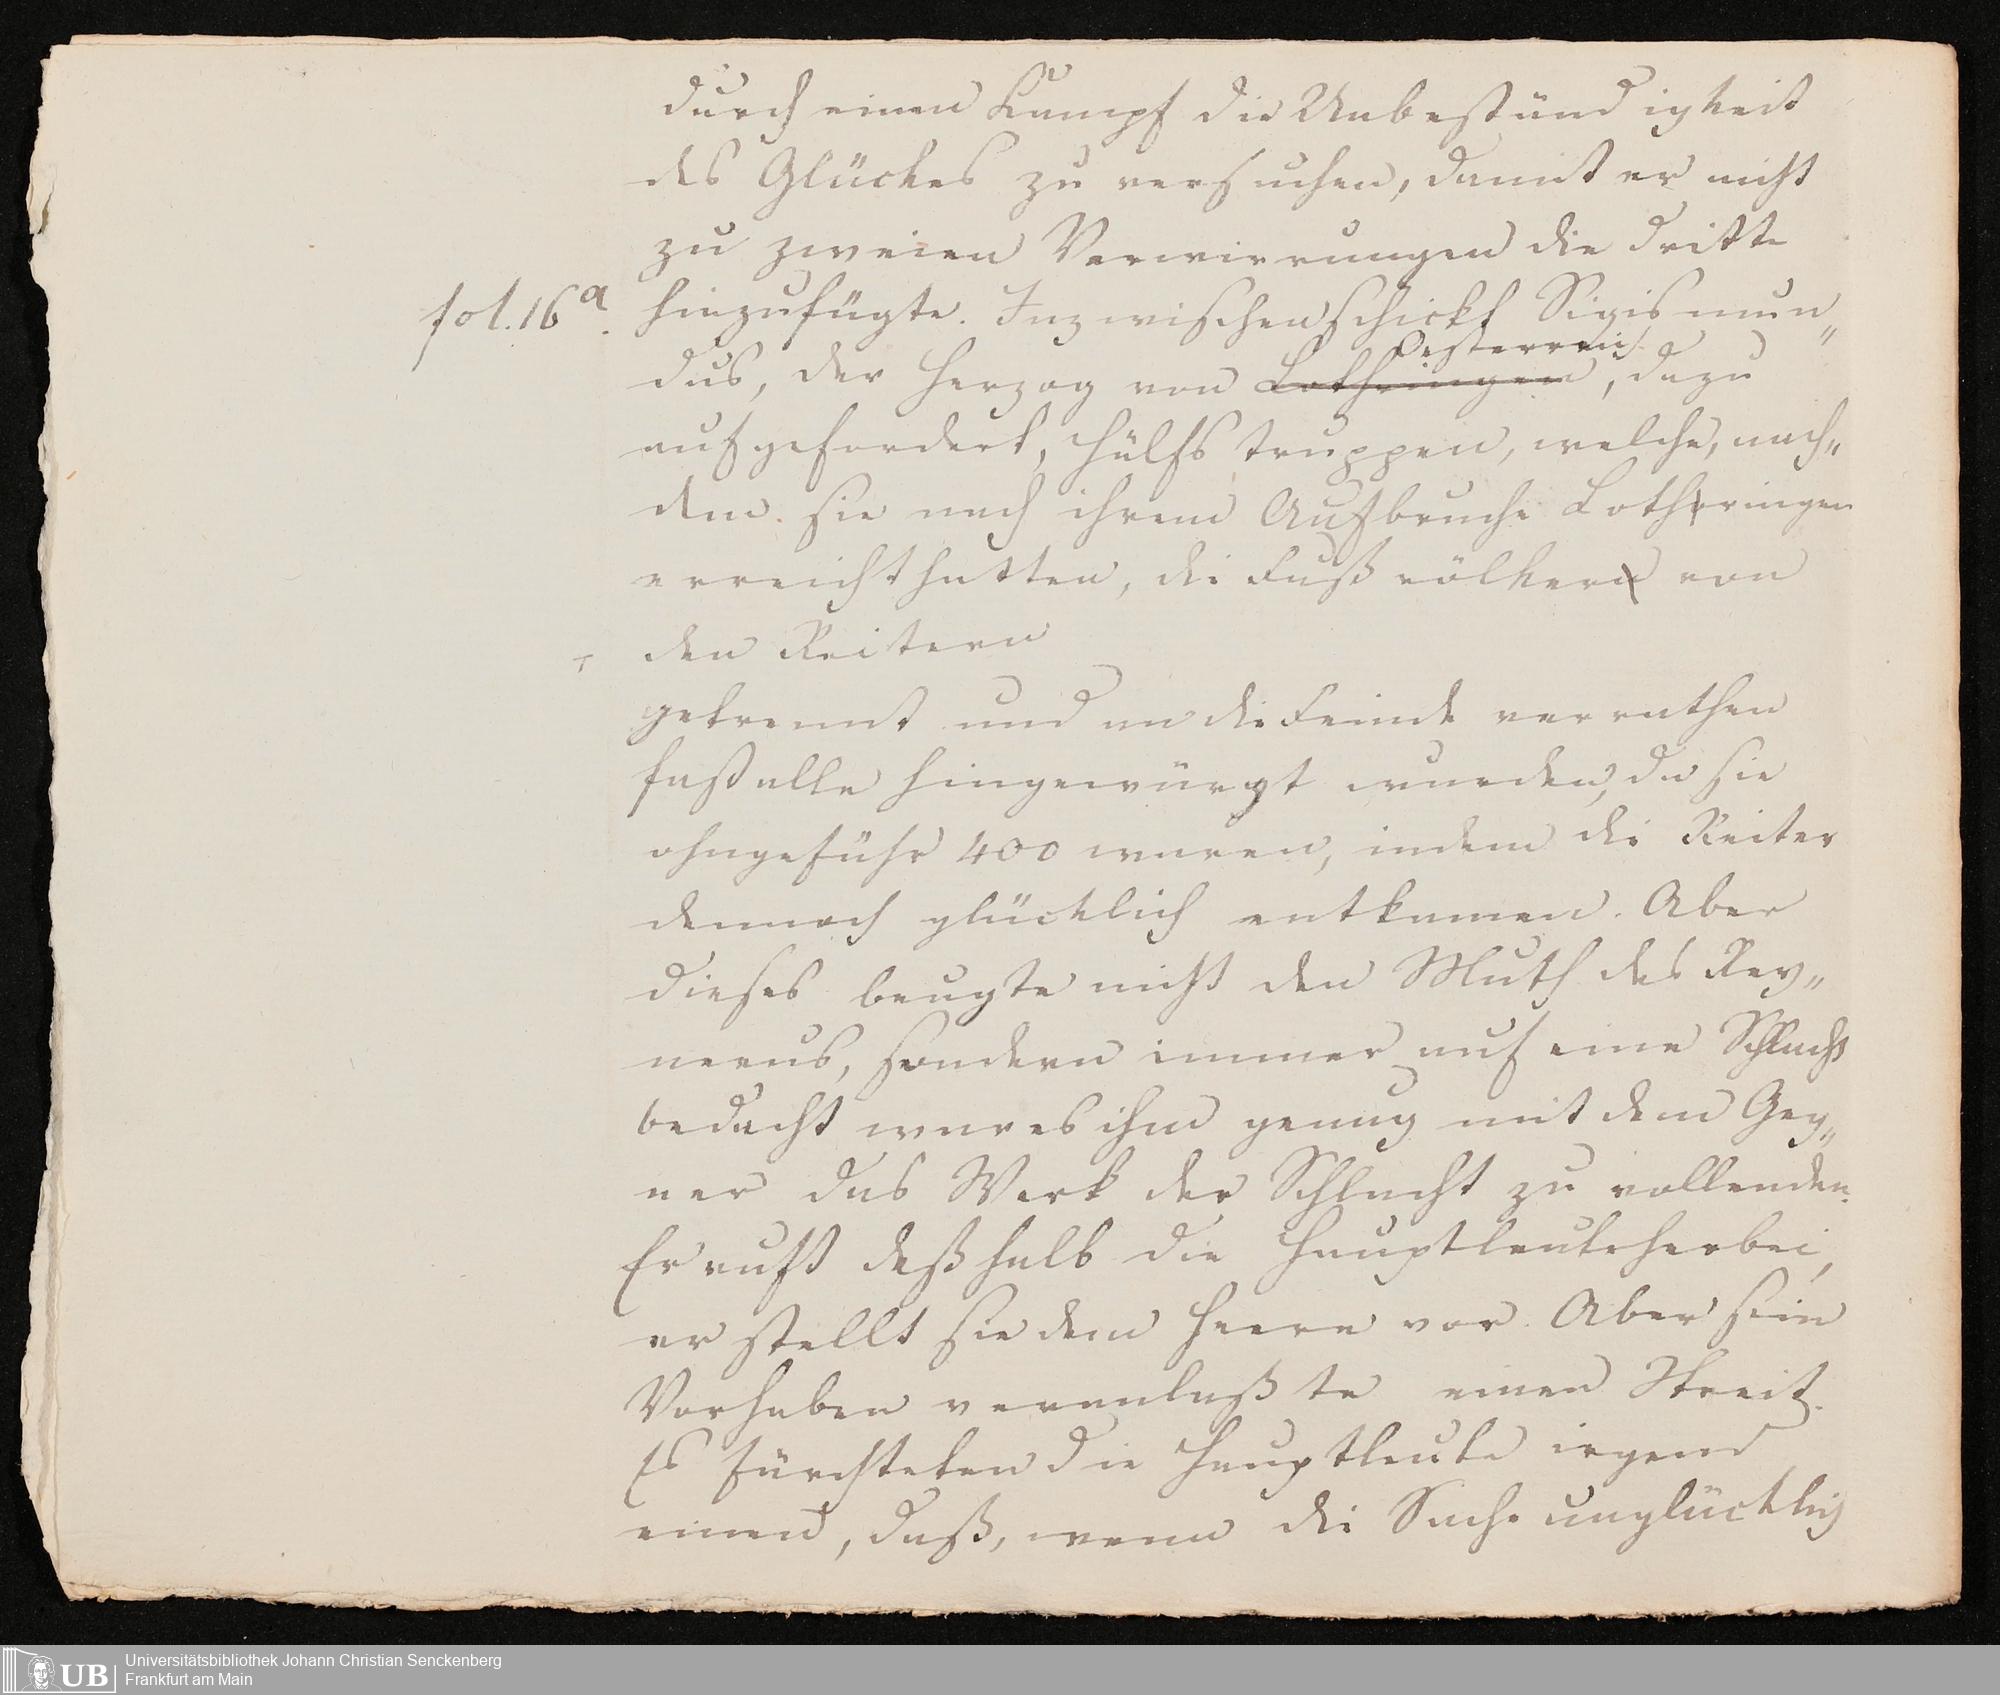 durch einen Kampf die Unbeständigkeit
des Glückes zu versuchen, damit er nicht
zu zweien Verwirrungen die dritte
fol. 16a. hinzufügte. Inzwischen schickt Sigismun„
Oesterreich
dus, der Herzog von Lothringen, dazu
aufgefordert, Hülfstruppen, welche, nach„
dem sie nach ihrem Aufbruche Lothringen
erreicht hatten, die Fußvölker von
den Reitern
getrennt und an die Feinde verrathen
fast alle hingewürgt wurden, da sie
ohngefähr 400 waren, indem die Reiter
dennoch glücklich entkamen. Aber
dieses beugte nicht den Muth des Rey„
nerus, sondern immer auf eine Schlacht
bedacht war es ihm genug mit dem Geg„
ner das Werk der Schlacht zu vollenden.
Er ruft deßhalb die Hauptleute herbei,
er stellt sie dem Heere vor. Aber sein
Vorhaben veranlaßte einen Streit.
Es fürchteten die Hauptleute irgend
einen, daß, wenn die Sache unglücklich
Universitätsbibliothek Johann Christian Senckenberg
UB Frankfurt am Main